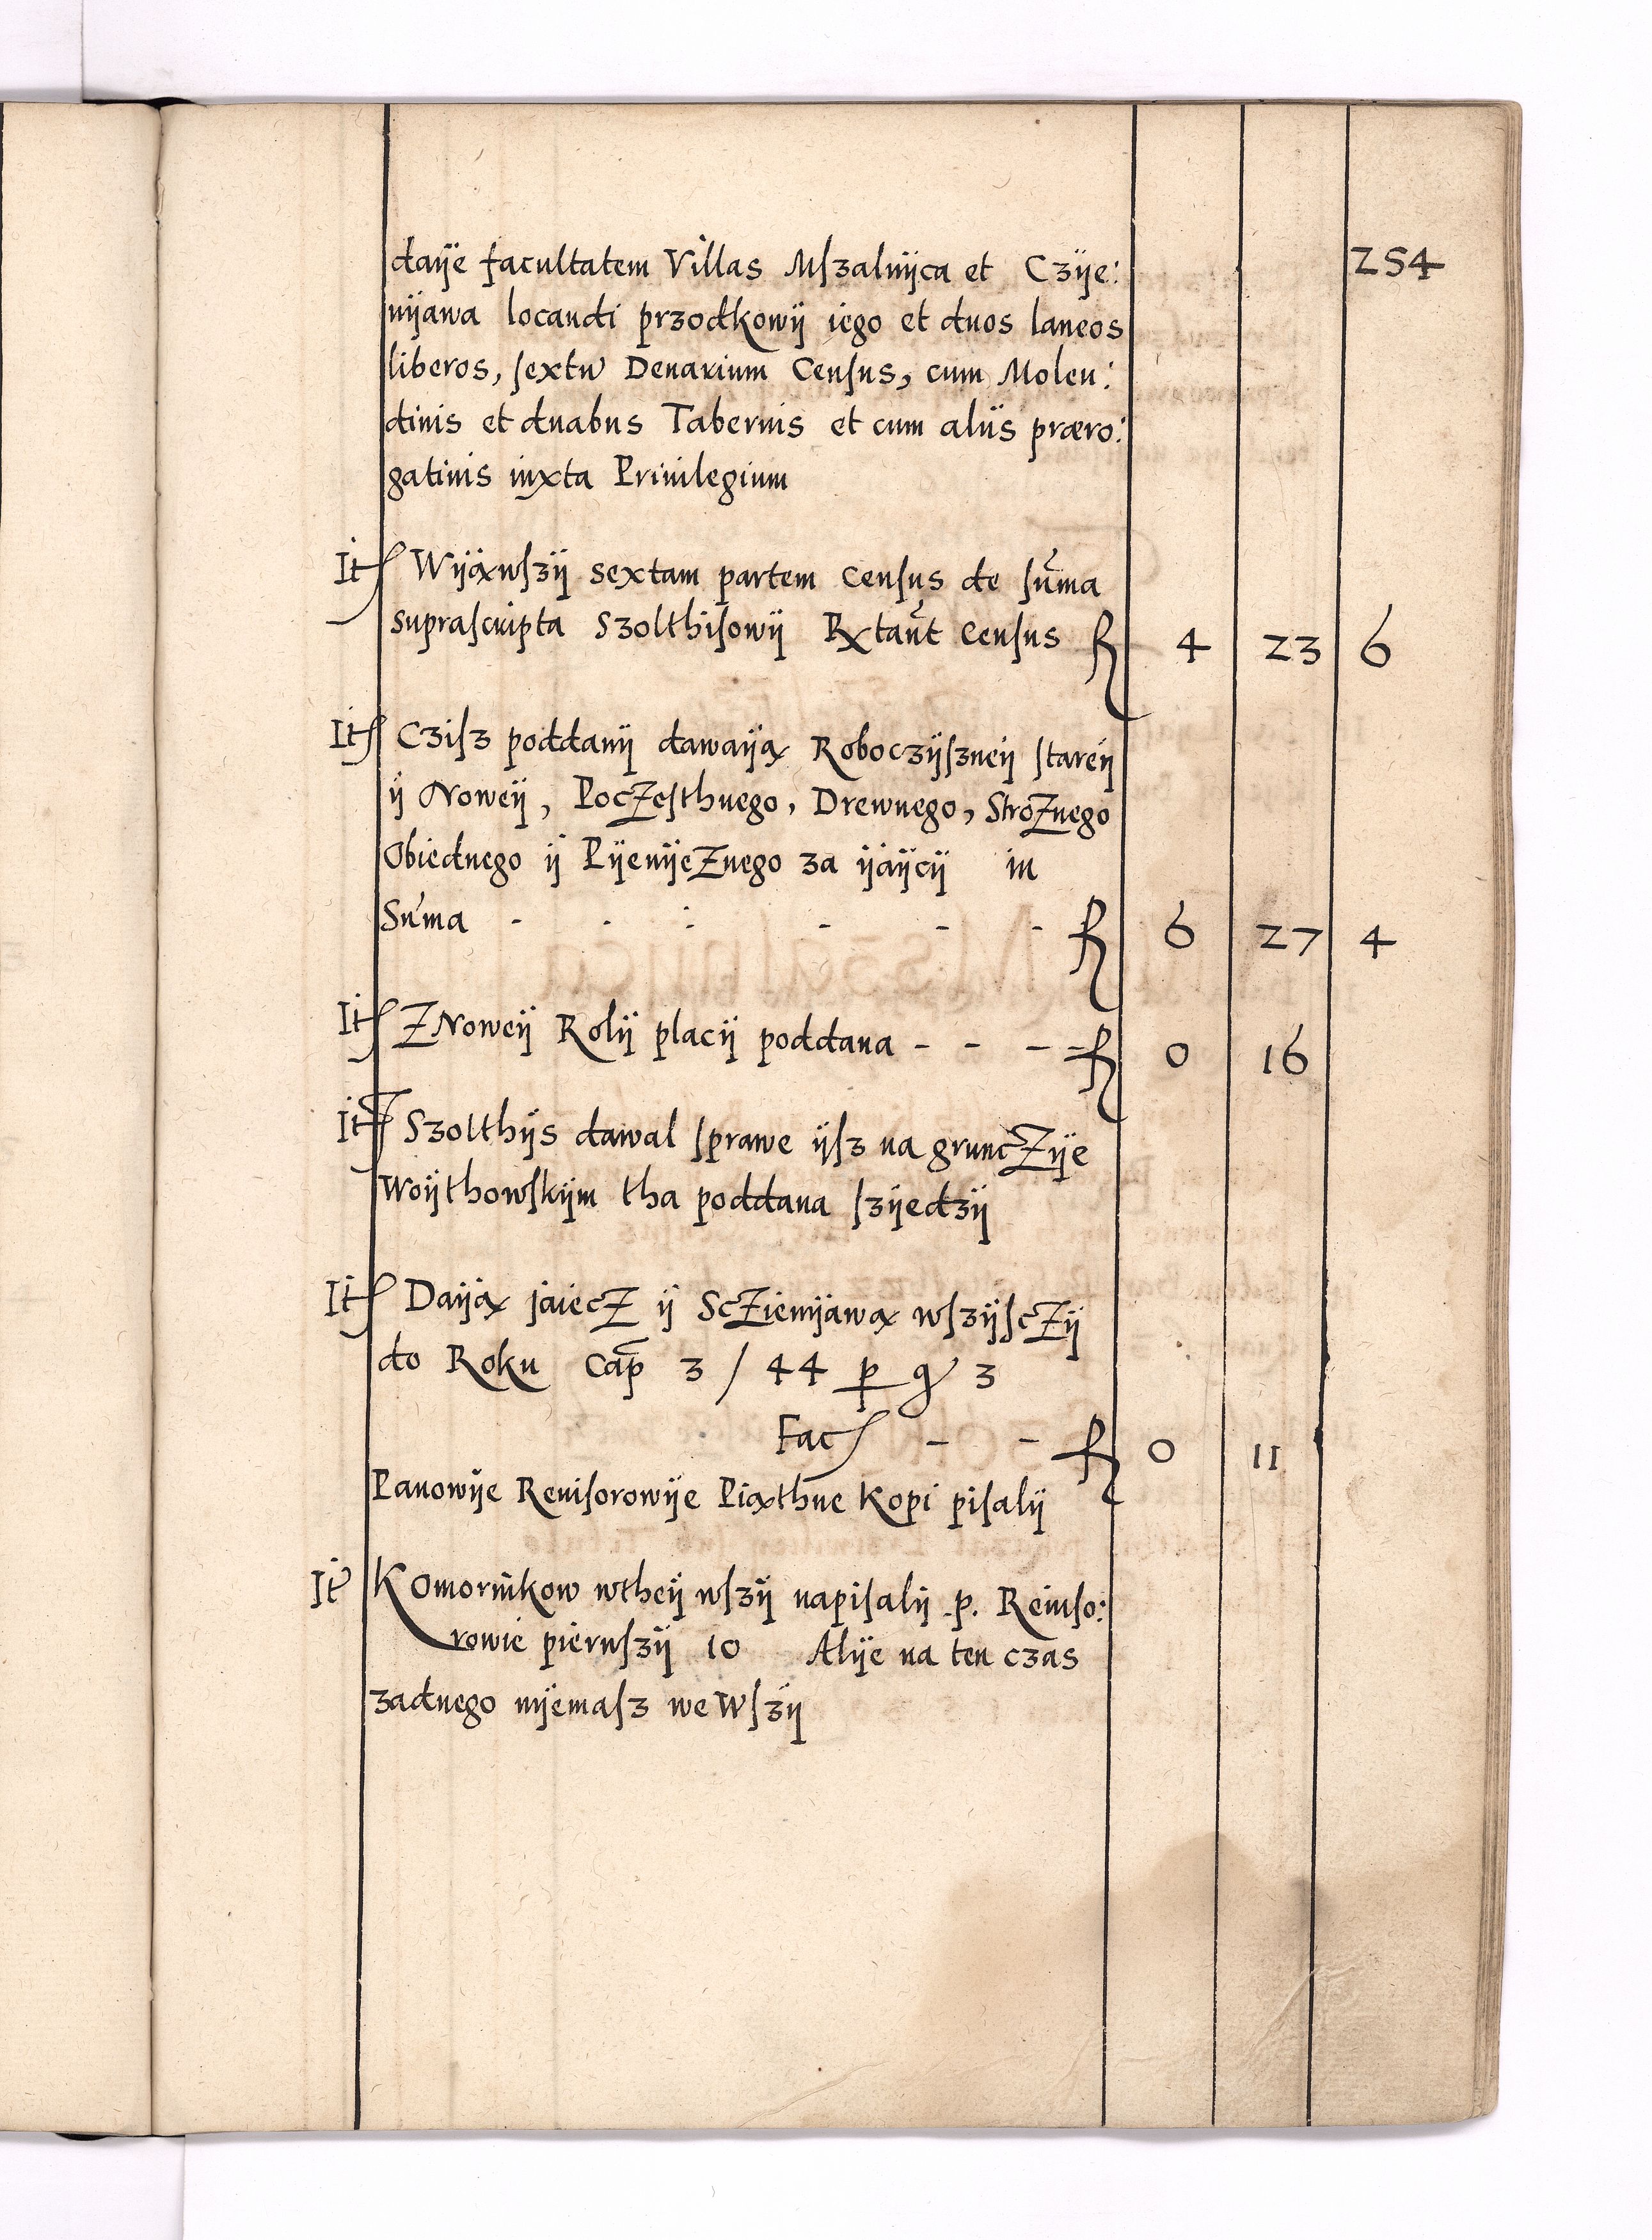 254
daÿe facultatem Villas Mſzalnÿca et Czÿe:
nÿawa locandi przodkowÿ iego et duos laneos
liberos, ſextũ Denarium Cenſus, cum Molen:
dinis et duabus Tabernis et cum aliis præro:
gatiuis iuxta Priuilegium
It Wÿąwſzÿ sextam partem Cenſus de ſum̃a
supraſcripta Szolthiſowÿ Extant Cenſus R 4 23 6
It Cziſz poddanÿ dawaÿą Roboczÿſzneÿ ſtareÿ
ÿ Noweÿ, Poczeſthnego, Drewnego, Strożnego
Obiednego ÿ Pÿenÿeznego za ÿaÿcÿ in
Sum̃a - - - - - - R 6 27 4
It ZNoweÿ Rolÿ placÿ poddana - - - R 0 16
It Szolthÿs dawal ſprawe ÿſz na grunczÿe
Woÿthowſkÿm tha poddana ſzÿedzÿ
It Daÿą jaiecz ÿ Scziemÿawą wſzÿſczÿ
do Roku Cap 3 / 44 p gr 3
Fac - - R 0 11
Panowÿe Reuiſorowÿe Piąthne Kopi piſalÿ
It Komornikow wtheÿ wſzÿ napiſalÿ p. Reuiſo:
rowie pierwſzÿ 10 Alÿe na ten czas
zadnego nÿemaſz we Wſzÿ